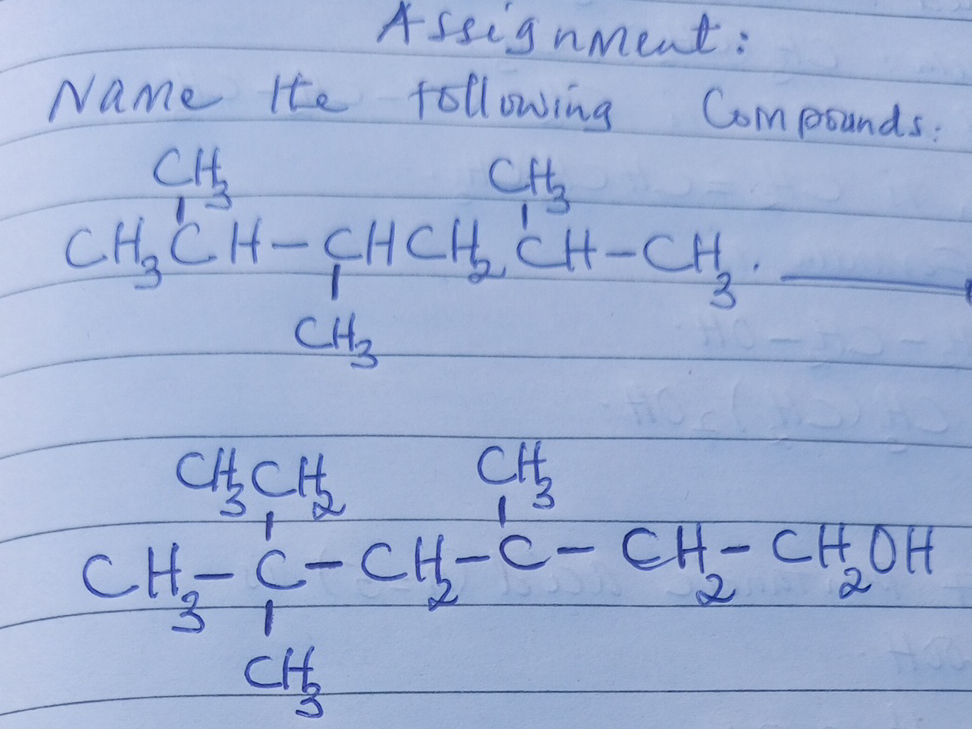 Assignment:
Name the following Compounds:
CH3 CH3
CH3CH-CHCH2CH-CH3.
CH3
CH3CH2 CH3
CH3-C-CH2-C-CH2-CH2OH
CH3